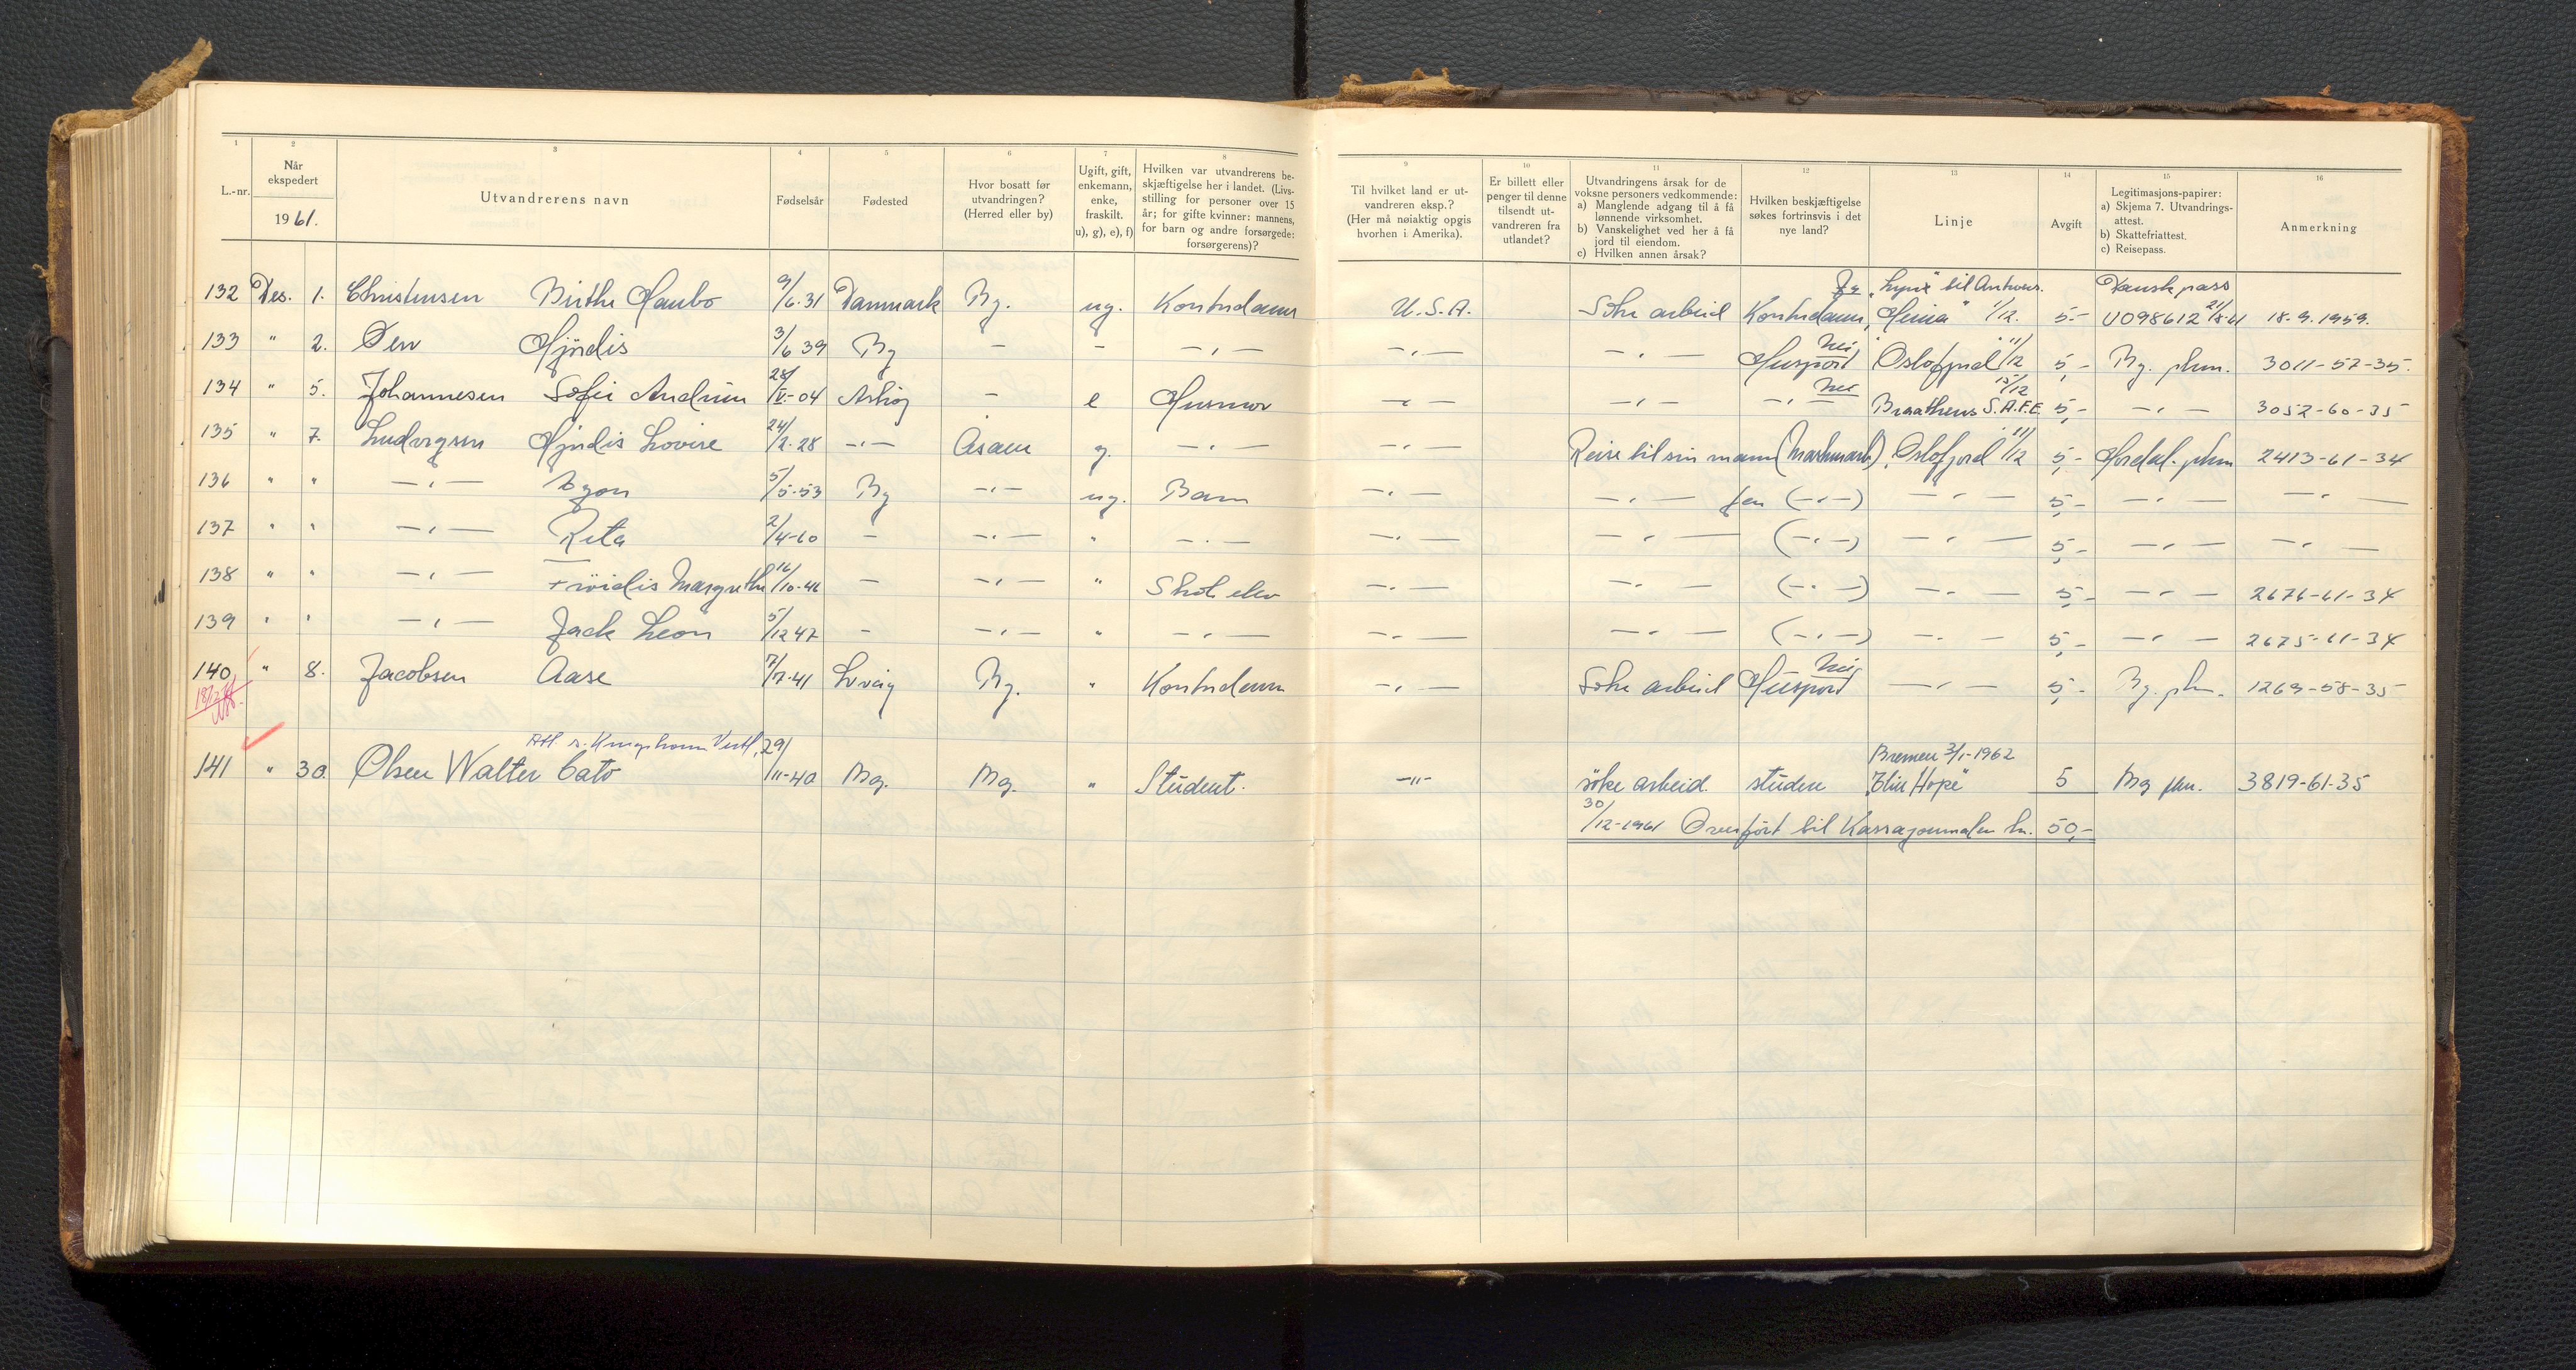 1 2 3 4 5 6 7 8 9 10 11 12 13 14 15 16
L.-nr.
Når ekspedert
1961.
Utvandrerens navn
Fødselsår
Fødested
Hvor bosatt før utvandringen? (Herred eller by)
Ugift, gift, enkemann, enke, fraskilt. u), g), e), f)
Hvilken var utvandrerens beskjæftigelse her i landet. (Livsstilling for personer over 15 år; for gifte kvinner: mannens, for barn og andre forsørgede: forsørgerens)?
Til hvilket land er utvandreren eksp.? (Her må nøiaktig opgis hvorhen i Amerika).
Er billett eller penger til denne tilsendt utvandreren fra utlandet?
Utvandringens årsak for de voksne personers vedkommende:
a) Manglende adgang til å få lønnende virksomhet.
b) Vanskelighet ved her å få jord til eiendom.
c) Hvilken annen årsak?
Hvilken beskjæftigelse søkes fortrinsvis i det nye land?
Linje
Avgift
Legitimasjons-papirer:
a) Skjema 7. Utvandringsattest.
b) Skattefriattest.
c) Reisepass.
Anmerkning
Ja "Lynx" til Antwer. Dansk pass
132 Des. 1. Christensen Birthe Haubo 9/6.31 Danmark Bg. ug. Kontordame U.S.A. Søke arbeid Kontordame 1/12. 5.- U098612 21/8-61 18.9.1959.
133 " 2. Hjørdis 3/6 39 Bg - - -"- -"- -"- Nei Huspost "Oslofjord" 11/12 5,- Bg. pkm. 3011-57-35.
134 " 5. Johannesen Sofie 28/V.-04 Askøy - e Husmor -"- -"- Nei -"- Braathens S.A.F.E. 15/12 5,- -"- 3052-60-35
135 " 7. Ludvigsen Hjørdis Lovise 24/2.28 -"- Åsane g. -"- -"- Reise til sin mann "Oslofjord" 11/12 5,- Hordal. pkm 2413-61-34
136 " " -"- Egon 5/5-53 Bg -"- ug. Barn -"- -"- far (-"-) -"- 5,- -"- -"-
137 " " -"- Rita 2/4-60 - -"- " -"- -"- -"- (-"-) -"- 5,- -"- -"-
138 " " -"- Margrethe 16/10-46 - -"- " Skole elev -"- -"- (-"-) -"- 5,- -"- 2676-61-34
139 " " -"- Jack Leon 5/12 47 - -"- " -"- -"- -"- (-"-) -"- 5,- -"- 2675-61-34
140 " 8. Jacobsen Aase 7/7-41 Bg. " Kontordame -"- Søke arbeid Nei Huspost -"- 5,- Bg. pkm. 1269-58-35
Bremen 3/1-1962
141 " 30. Olsen Walter Cato 29/11-40 Bg. Bg. " Student. -"- søke arbeid. studere "Elin Hope" 5 Bg pkm. 3819-61-35
30/12-1961 Overført til Kassajournalen kr. 50,-